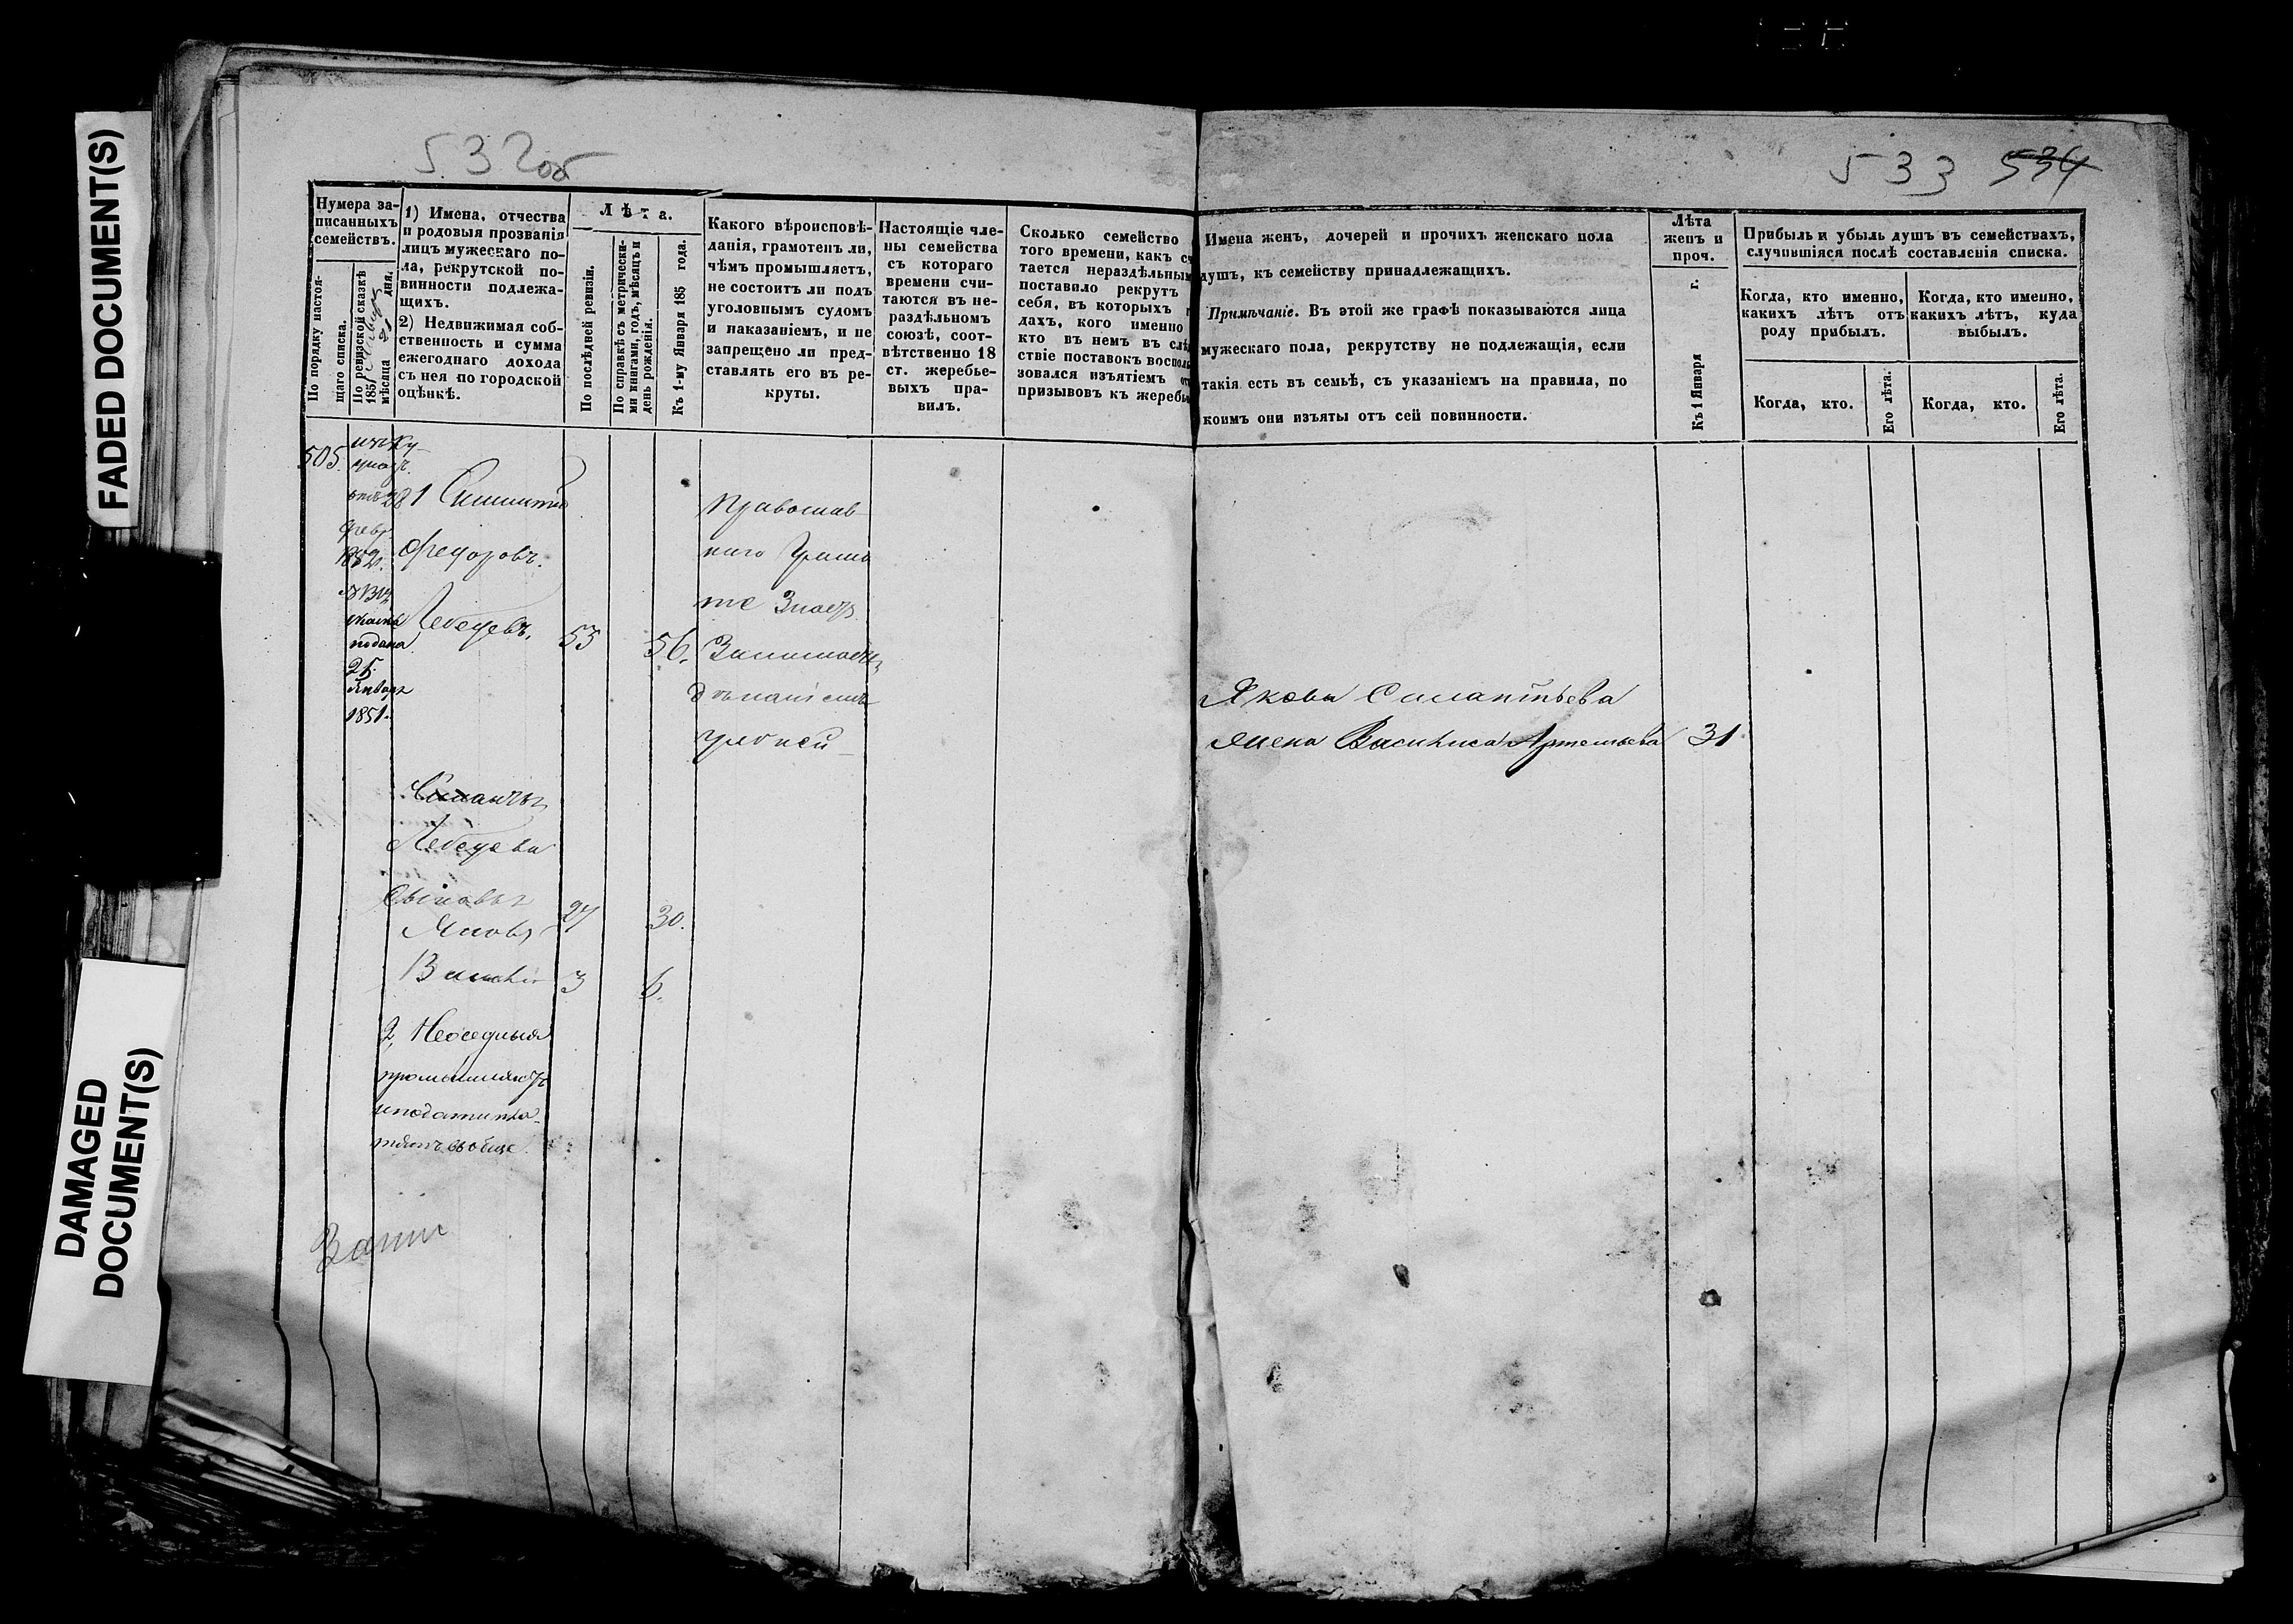 FADED DOCUMENT(S)
DAMAGED
DOCUMENT(S)
532об
Нумера за-
писанныхъ
семействъ.
По порядку настоя-
щаго списка.
По ревизской сказкѣ
185
мѣсяца 21 дня.
1) Имена, отчества
и родовыя прозванія
лицъ мужескаго по-
ла, рекрутской по-
винности подлежа-
щихъ.
2) Недвижимая соб-
ственность и сумма
ежегоднаго дохода
съ нея по городской
оцѣнкѣ.
Лѣта.
По послѣдней ревизіи.
По справкѣ съ метрически-
ми книгами, годъ, мѣсяцъ и
день рожденія.
Къ 1-му Января 185 года.
Какого вѣроисповѣ-
данія, грамотенъ ли,
чѣмъ промышляетъ,
не состоитъ ли подъ
уголовнымъ судомъ
и наказаніемъ, и не
запрещено ли пред-
ставлять его въ ре-
круты.
Настоящіе чле-
ны семейства
съ котораго
времени счи-
таются въ не-
раздѣльномъ
союзѣ, соот-
вѣтственно 18
ст. жеребье-
выхъ пра-
вилъ.
Сколько семейство
того времени, какъ сч
тается нераздѣльным
поставило рекрутъ
себя, въ которыхъ г
дахъ, кого именно
кто въ немъ въ слѣ
ствіе поставокъ воспол
зовался изъятіемъ от
призывовъ къ жеребь
505.
281
февр.
1852г.
подана
25
Января
1851г.
Федоровъ.
Лебедевъ.
53
56.
Православ-
наго Грамо
те знаетъ
Занимаетъ
Лебедева
Сыновья
Яковъ
27
30.
Василій
3
6.
2, Неоседлыя
Запис
533 534
Имена женъ, дочерей и прочихъ женскаго пола
душъ, къ семейству принадлежащихъ.
Примѣчаніе. Въ этой же графѣ показываются лица
мужескаго пола, рекрутству не подлежащія, если
такія есть въ семьѣ, съ указаніемъ на правила, по
коимъ они изъяты отъ сей повинности.
Лѣта
женъ и
проч.
Къ 1 Января г.
Прибыль и убыль душъ въ семействахъ,
случившіяся послѣ составленія списка.
Когда, кто именно,
какихъ лѣтъ отъ
роду прибылъ.
Когда, кто именно,
какихъ лѣтъ, куда
выбылъ.
Когда, кто.
Его лѣта.
Когда, кто.
Его лѣта.
Якова Силантьева
жена Василиса Артемьева 31